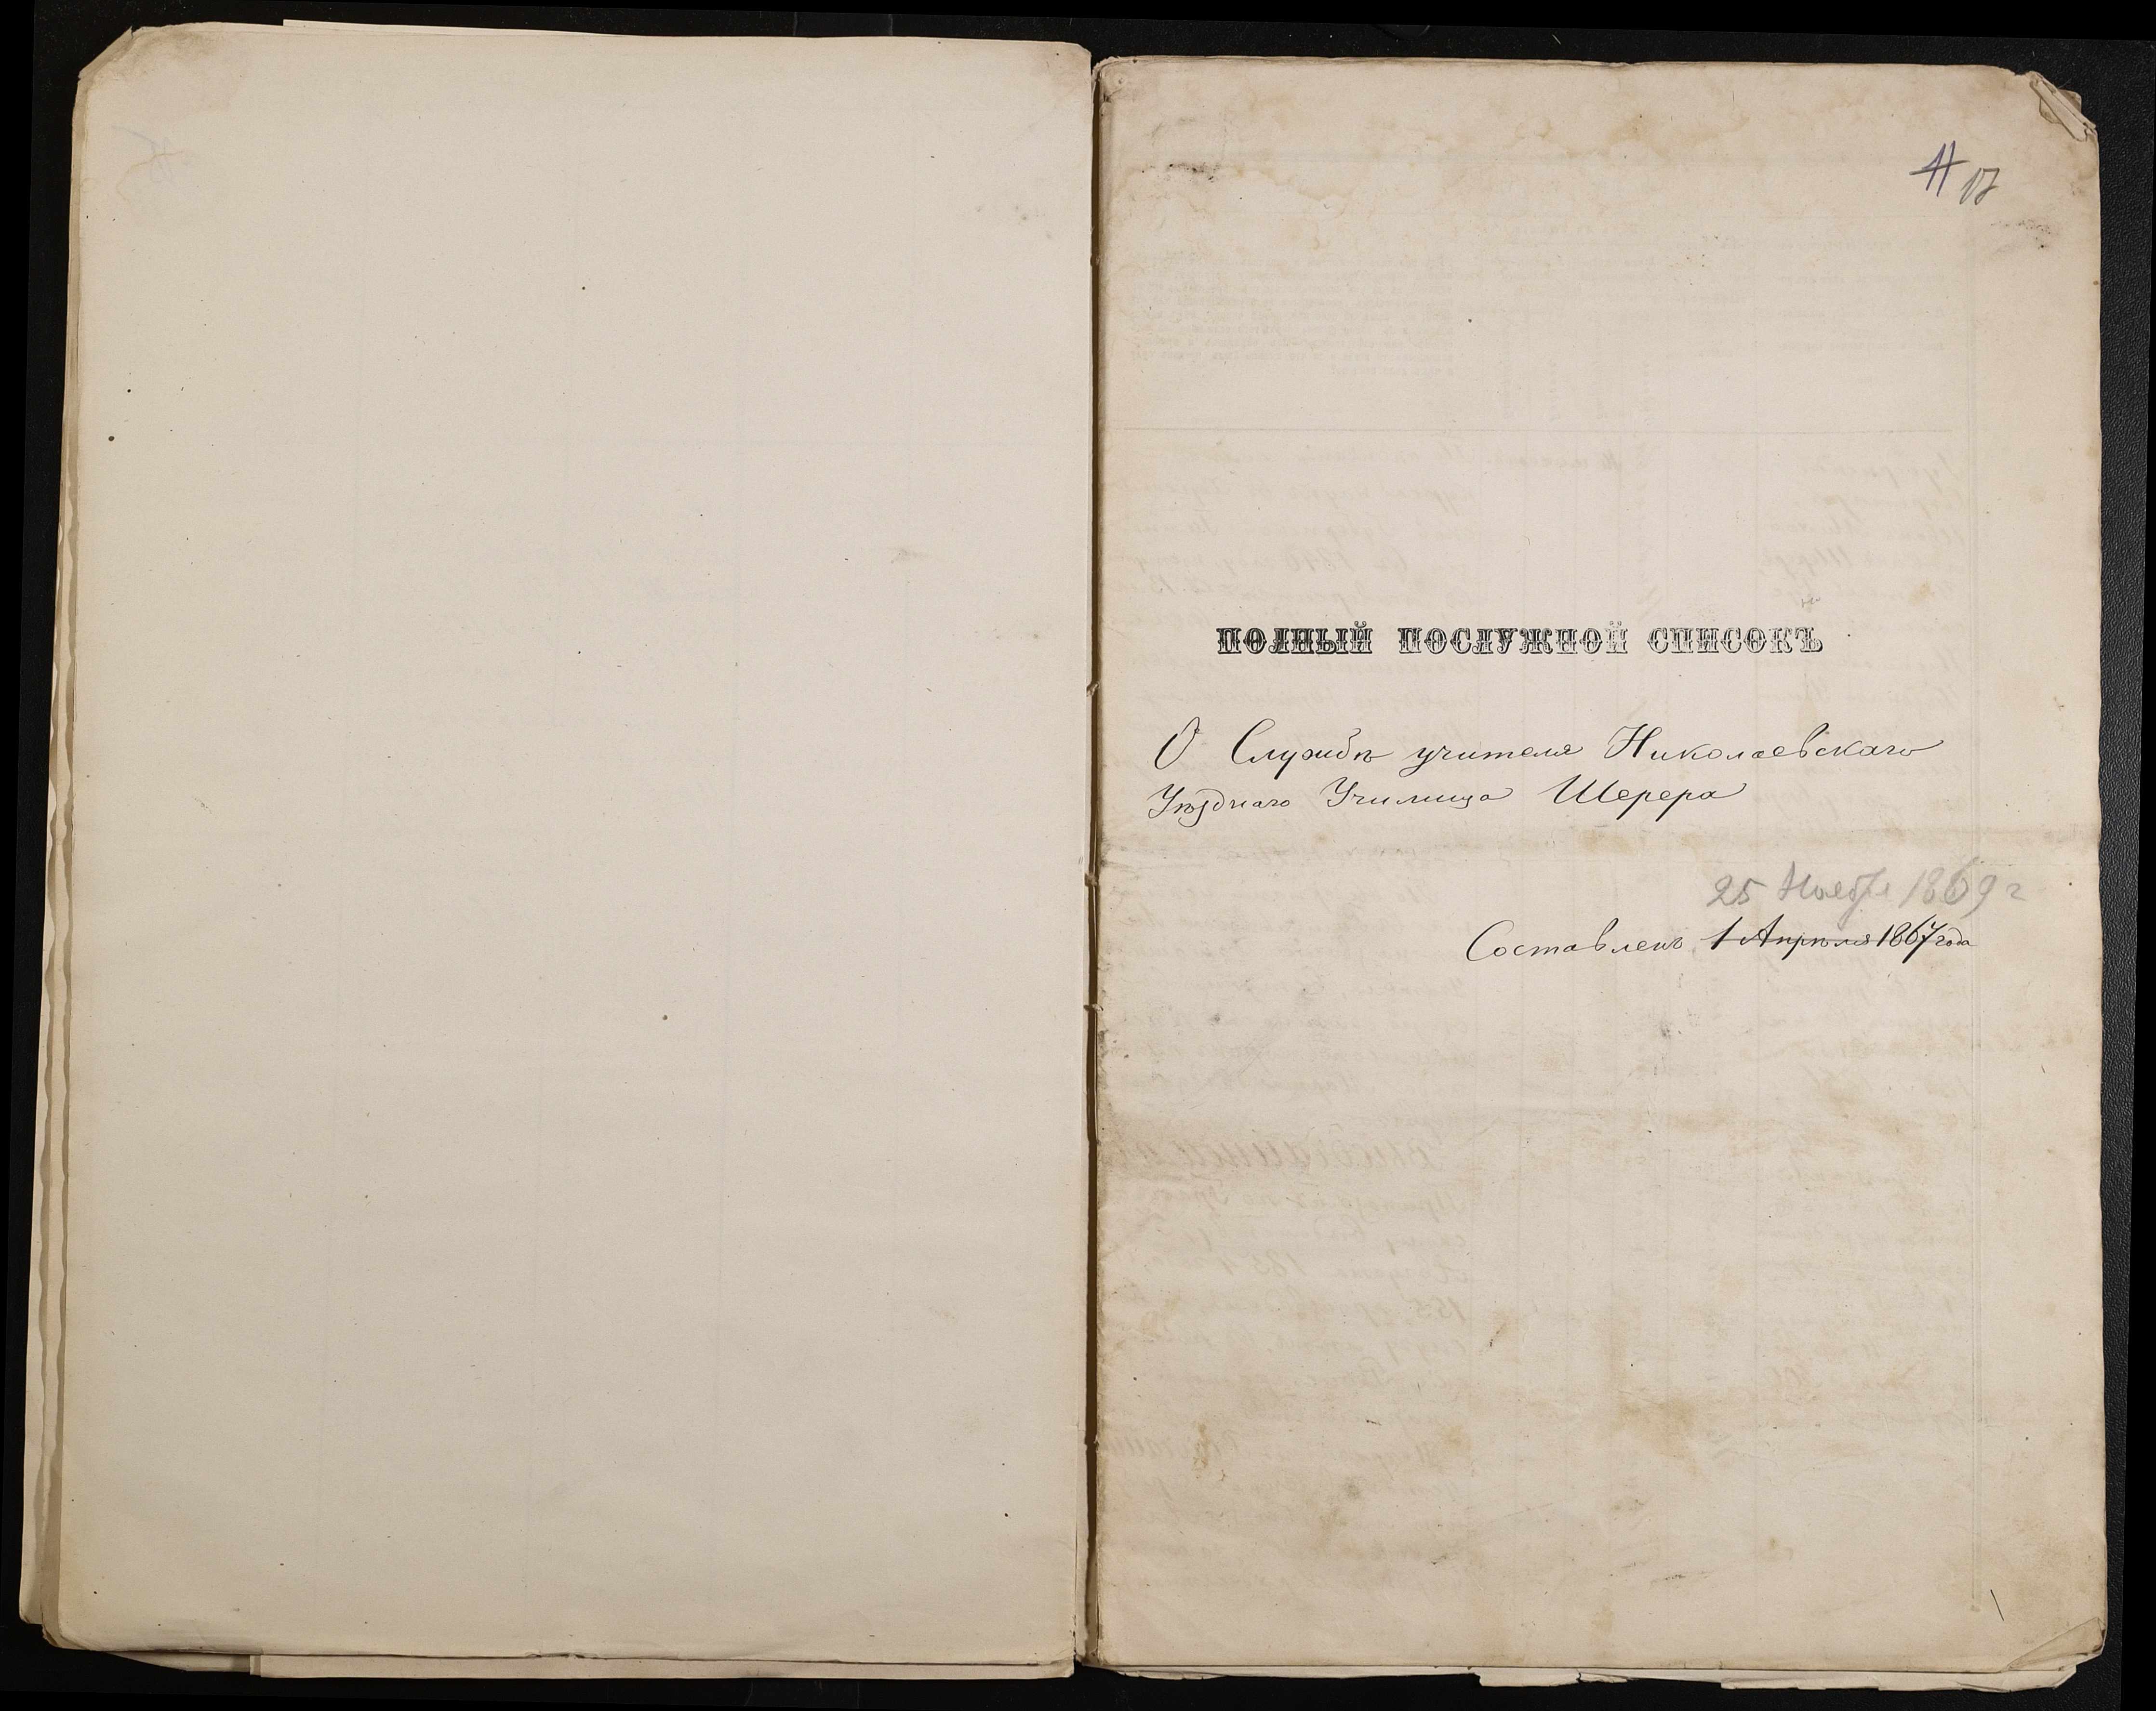 17
ПОЛНЫЙ ПОСЛУЖНОЙ СПИСОКЪ
О Службѣ учителя Николаевскаго
Уѣзднаго Училища Шерера
25 Ноября 1869 г
Составленъ 1 Апрѣля 1867 года